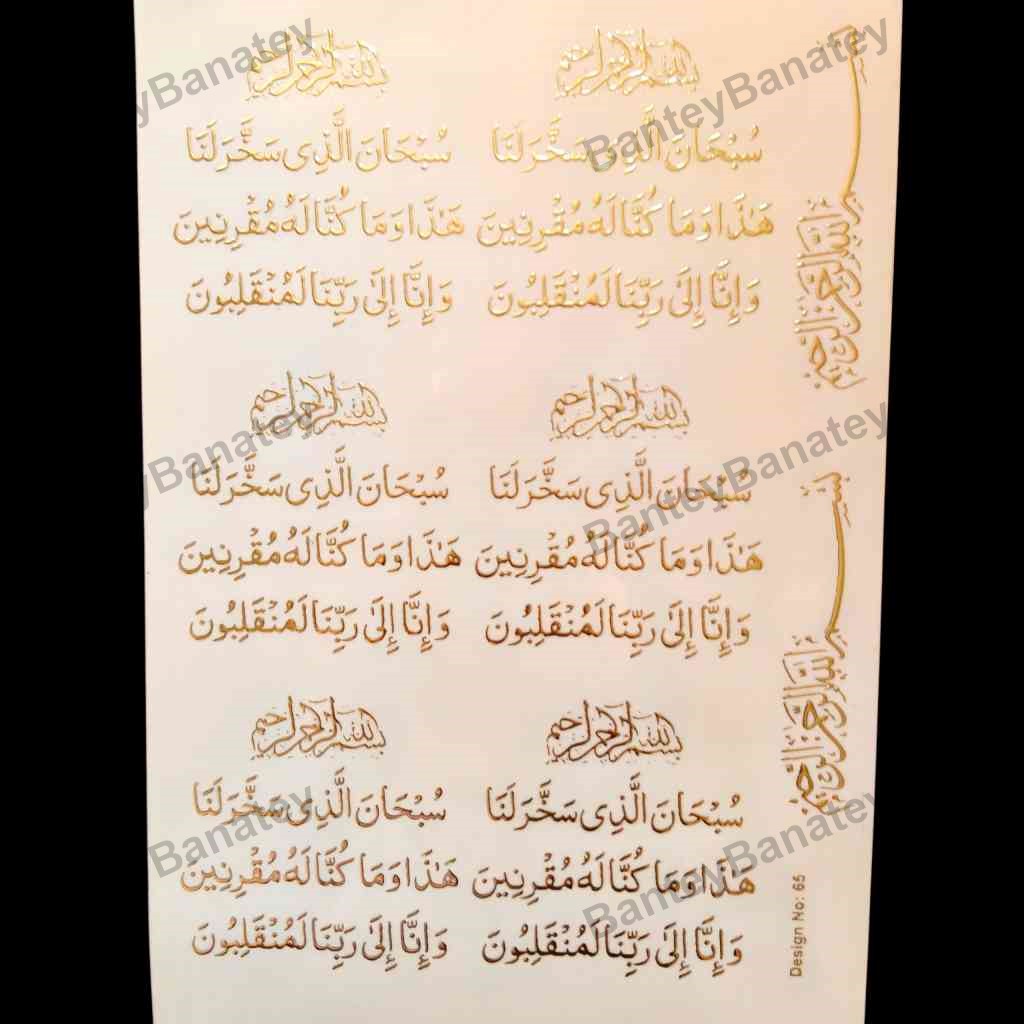 بسم الله الرحمن الرحيم
سُبْحَانَ الَّذِی سَخَّرَ لَنَا
هَٰذَا وَمَا كُنَّا لَهُ مُقْرِنِينَ
وَإِنَّا إِلَىٰ رَبِّنَا لَمُنْقَلِبُونَ
بسم الله الرحمن الرحيم
سُبْحَانَ الَّذِی سَخَّرَ لَنَا
هَٰذَا وَمَا كُنَّا لَهُ مُقْرِنِينَ
وَإِنَّا إِلَىٰ رَبِّنَا لَمُنْقَلِبُونَ
بسم الله الرحمن الرحيم
سُبْحَانَ الَّذِی سَخَّرَ لَنَا
هَٰذَا وَمَا كُنَّا لَهُ مُقْرِنِينَ
وَإِنَّا إِلَىٰ رَبِّنَا لَمُنْقَلِبُونَ
بسم الله الرحمن الرحيم
سُبْحَانَ الَّذِی سَخَّرَ لَنَا
هَٰذَا وَمَا كُنَّا لَهُ مُقْرِنِينَ
وَإِنَّا إِلَىٰ رَبِّنَا لَمُنْقَلِبُونَ
بسم الله الرحمن الرحيم
سُبْحَانَ الَّذِی سَخَّرَ لَنَا
هَٰذَا وَمَا كُنَّا لَهُ مُقْرِنِينَ
وَإِنَّا إِلَىٰ رَبِّنَا لَمُنْقَلِبُونَ
بسم الله الرحمن الرحيم
سُبْحَانَ الَّذِی سَخَّرَ لَنَا
هَٰذَا وَمَا كُنَّا لَهُ مُقْرِنِينَ
وَإِنَّا إِلَىٰ رَبِّنَا لَمُنْقَلِبُونَ
بسم الله الرحمن الرحيم
بسم الله الرحمن الرحيم
Design No: 65
yBanatey
BanteyBanatey
yBanatey
BanteyBanatey
Banatey
BanteyBanatey